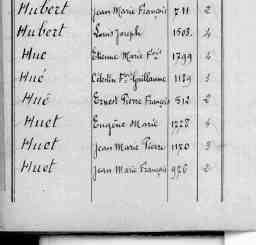 Hubert Jean Marie François 711 2
Hubert Louis Joseph 1503 4
Hue Etienne Marie Fçois 1799 4
Hué Célestin Fçs Guillaume 1129 1
Hué Ernest Pierre François 512 2
Huet Eugène Marie 1228 4
Huet Jean Marie Pierre 1170 3
Huet Jean Marie François 926 2